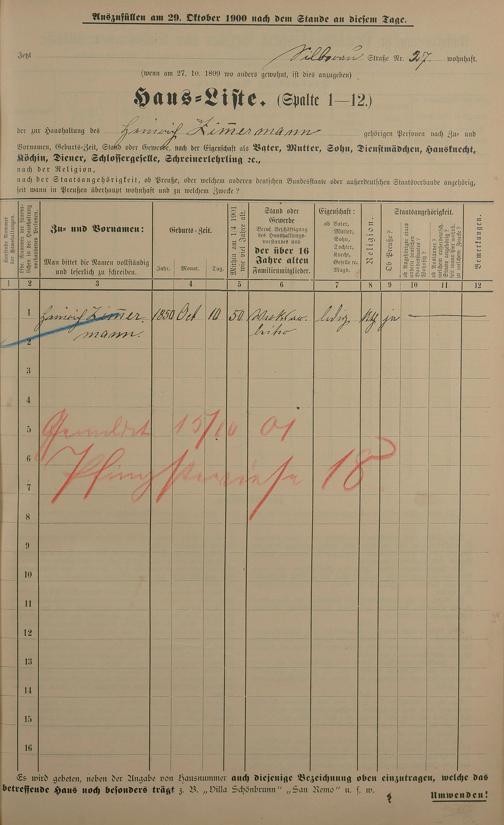 Auszufüllen am 29. Oktober 1900 nach dem Stande an diesem Tage.
Jetzt Straße Nr. 27. wohnhaft.
(wenn am 27. 10. 1899 wo anders gewohnt, ist dies anzugeben)
Haus-Liste. (Spalte 1—12.)
der zur Haushaltung des Heinrich Zimmermann gehörigen Personen nach Zu- und
Vornamen, Geburts-Zeit, Stand oder Gewerbe, nach der Eigenschaft als Vater, Mutter, Sohn, Dienstmädchen, Hausknecht,
Köchin, Diener, Schlossergeselle, Schreinerlehrling ꝛc.,
nach der Religion,
nach der Staatsangehörigkeit, ob Preuße, oder welchem anderen deutschen Bundesstaate oder außerdeutschen Staatsverbande angehörig,
seit wann in Preußen überhaupt wohnhaft und zu welchem Zwecke?
Zu- und Vornamen:
Man bittet die Namen vollständig
und leserlich zu schreiben.
Geburts-Zeit.
Jahr. Monat. Tag.
Mithin am 1/4 1901
wie viel Jahre alt.
Stand oder
Gewerbe
Beruf, Beschäftigung
des Haushaltungs-
vorstandes und
der über 16
Jahre alten
Familienmitglieder.
Eigenschaft:
ob Vater,
Mutter,
Sohn,
Tochter,
Knecht,
Geselle ꝛc.
Magd.
Religion.
Staatsangehörigkeit.
Ob Preuße?
Bemerkungen.
1 2 3 4 5 6 7 8 9 10 11 12
1 Heinrich Zimmer- 1850 Oct 10 50 ledig ja
2 mann.
3
4
5 Gemeldet 15/10 01
6
7 Pfingstweide 18
8
9
10
11
12
13
14
15
16
Es wird gebeten, neben der Angabe von Hausnummer auch diejenige Bezeichnung oben einzutragen, welche das
betreffende Haus noch besonders trägt z. B. „Villa Schönbrunn" „San Remo" u. s. w.
Umwenden!